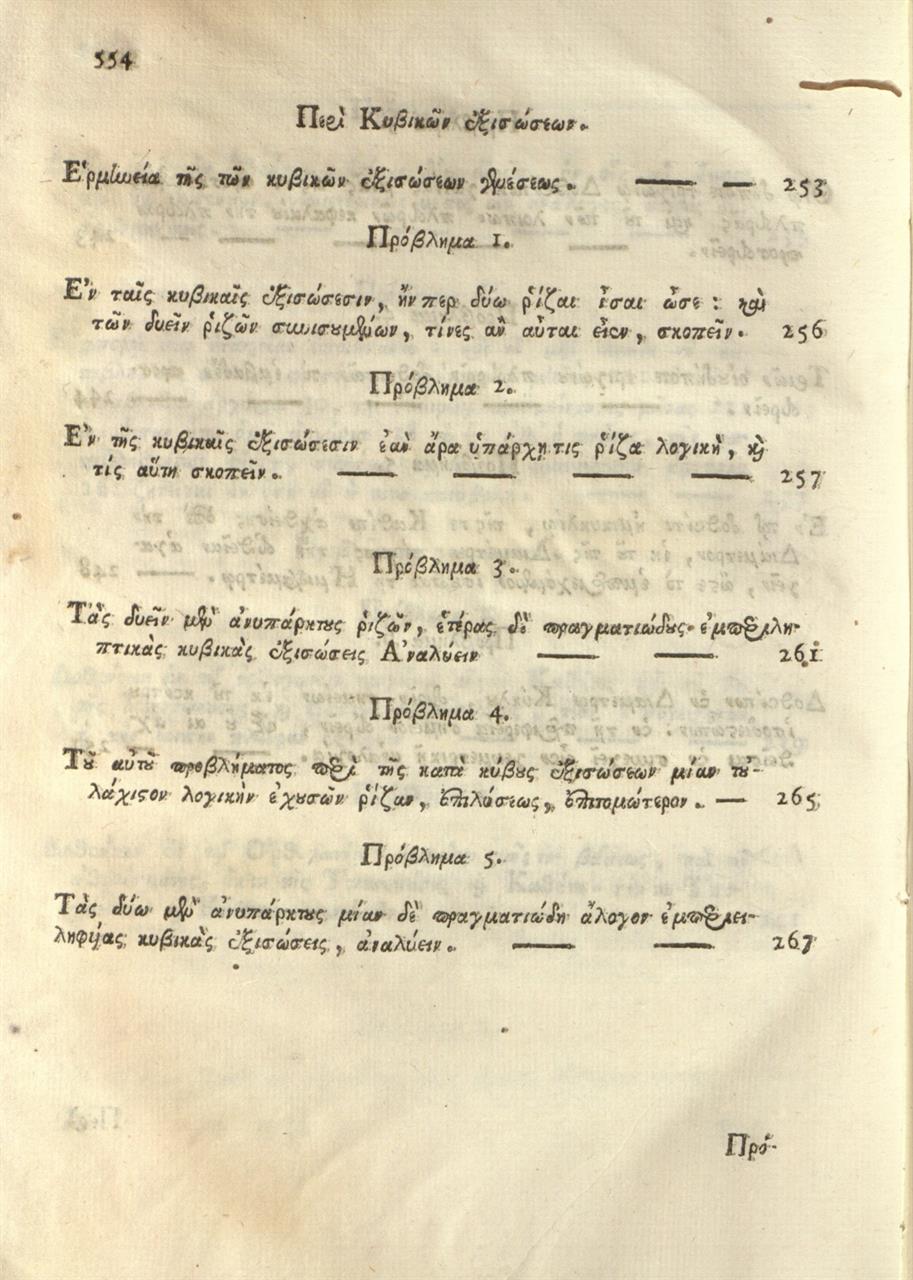 554
Περὶ Κυβικῶν ἐξισώσεων.
Ἑρμηνεία τῆς τῶν κυβικῶν ἐξισώσεων θέσεως. — — 253
Πρόβλημα 1.
Ἐν ταῖς κυβικαῖς ἐξισώσεσιν, ἥν περ δύω ῥίζαι ἶσαι ὦσι : καὶ
τῶν δυεῖν ῥιζῶν συνισουμένων, τίνες ἂν αὗται εἶεν, σκοπεῖν. 256
Πρόβλημα 2.
Ἐν τῆς κυβικαῖς ἐξισώσεσιν ἐὰν ἄρα ὑπάρχῃ τις ῥίζα λογικὴ, καὶ
τίς αὕτη σκοπεῖν. — — — — 257
Πρόβλημα 3.
Τὰς δυεῖν μὲν ἀνυπάρκτους ῥιζῶν, ἑτέρας δὲ πραγματιώδους ἐμπεριλη-
πτικὰς κυβικὰς ἐξισώσεις Ἀναλύειν — — 261
Πρόβλημα 4.
Τοῦ αὐτοῦ προβλήματος περὶ τῆς κατὰ κύβους ἐξισώσεων μίαν τοὐ-
λάχιστον λογικὴν ἐχουσῶν ῥίζαν, ἐπιλύσεως, ἐπιτομώτερον. — 265
Πρόβλημα 5.
Τὰς δύω μὲν ἀνυπάρκτους μίαν δὲ πραγματιώδη ἄλογον ἐμπεριει-
ληφυίας κυβικὰς ἐξισώσεις, ἀναλύειν. — — 267
Πρό-